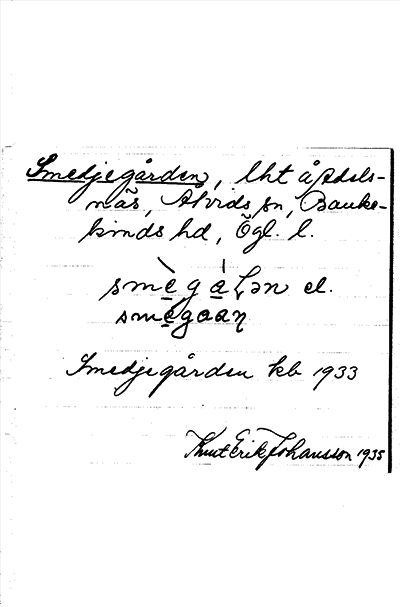 Smedjegården, lht å Adels-
näs, Åtvids sn, Banke-
kinds hd, Ögl. l.
smègaɭən el.
smègaaɳ
Smedjegården kb 1933
Knut Erik Johansson 1935